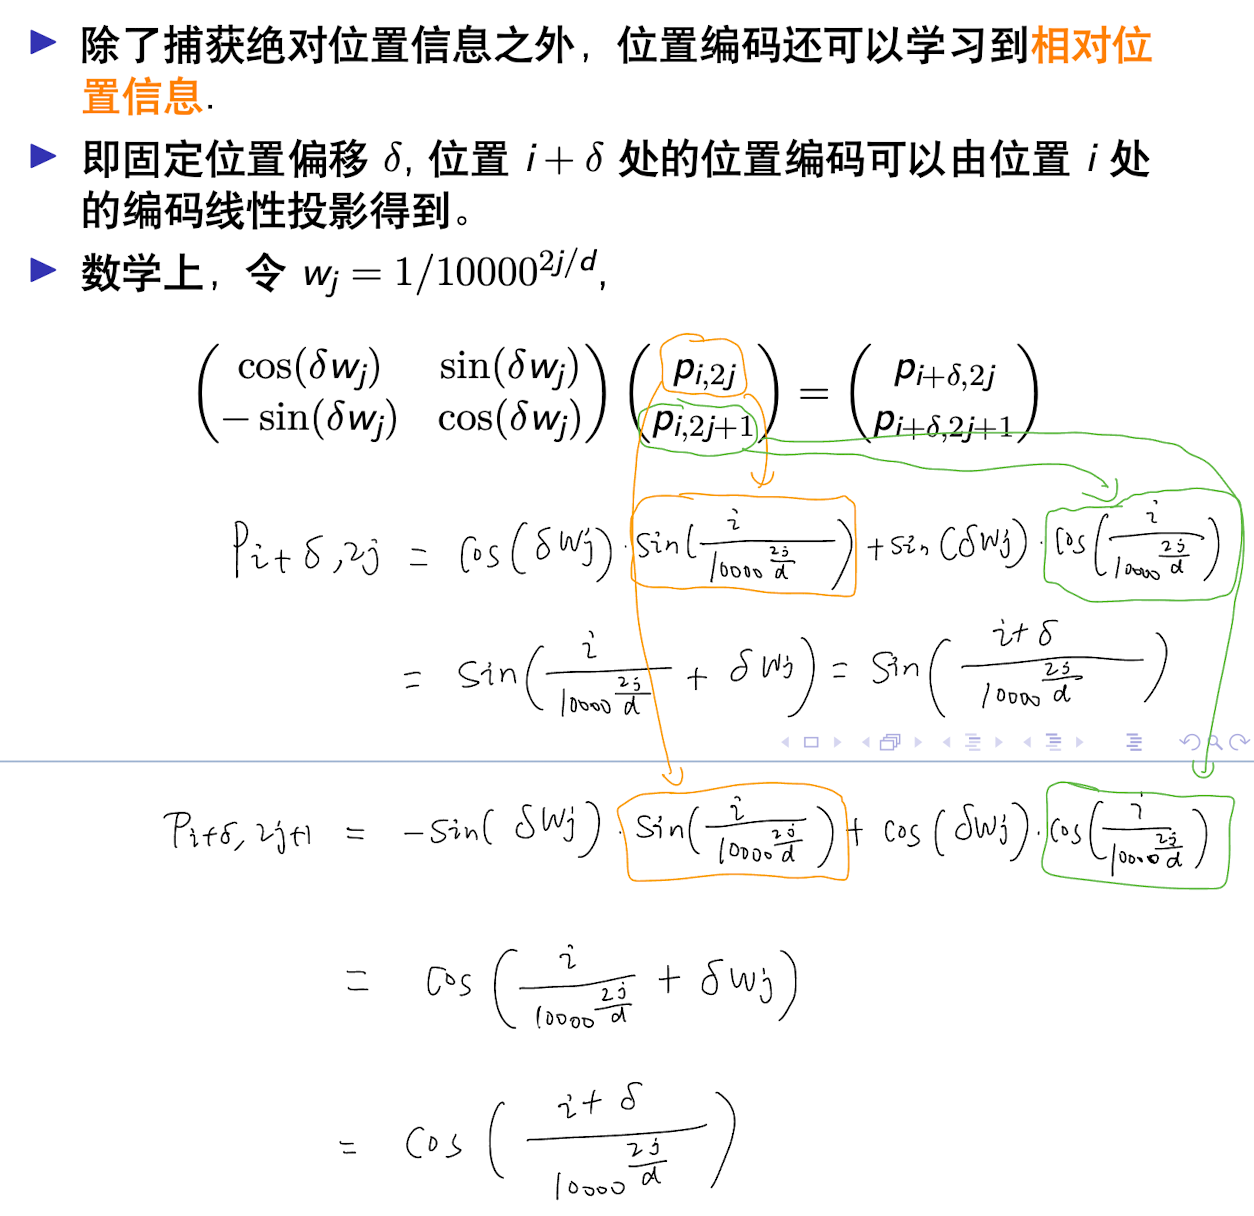 ▶ 除了捕获绝对位置信息之外，位置编码还可以学习到相对位
置信息.
▶ 即固定位置偏移 δ, 位置 i + δ 处的位置编码可以由位置 i 处
的编码线性投影得到。
▶ 数学上，令 w_j = 1/10000^{2j/d},
( cos(δw_j) sin(δw_j) ) ( p_{i,2j} ) = ( p_{i+δ,2j} )
( −sin(δw_j) cos(δw_j) ) ( p_{i,2j+1} ) ( p_{i+δ,2j+1} )
P_{i+δ,2j} = cos(δw_j)·sin(i/10000^{2j/d}) + sin(δw_j)·cos(i/10000^{2j/d})
= sin(i/10000^{2j/d} + δw_j) = sin((i+δ)/10000^{2j/d})
P_{i+δ,2j+1} = −sin(δw_j)·sin(i/10000^{2j/d}) + cos(δw_j)·cos(i/10000^{2j/d})
= cos(i/10000^{2j/d} + δw_j)
= cos((i+δ)/10000^{2j/d})